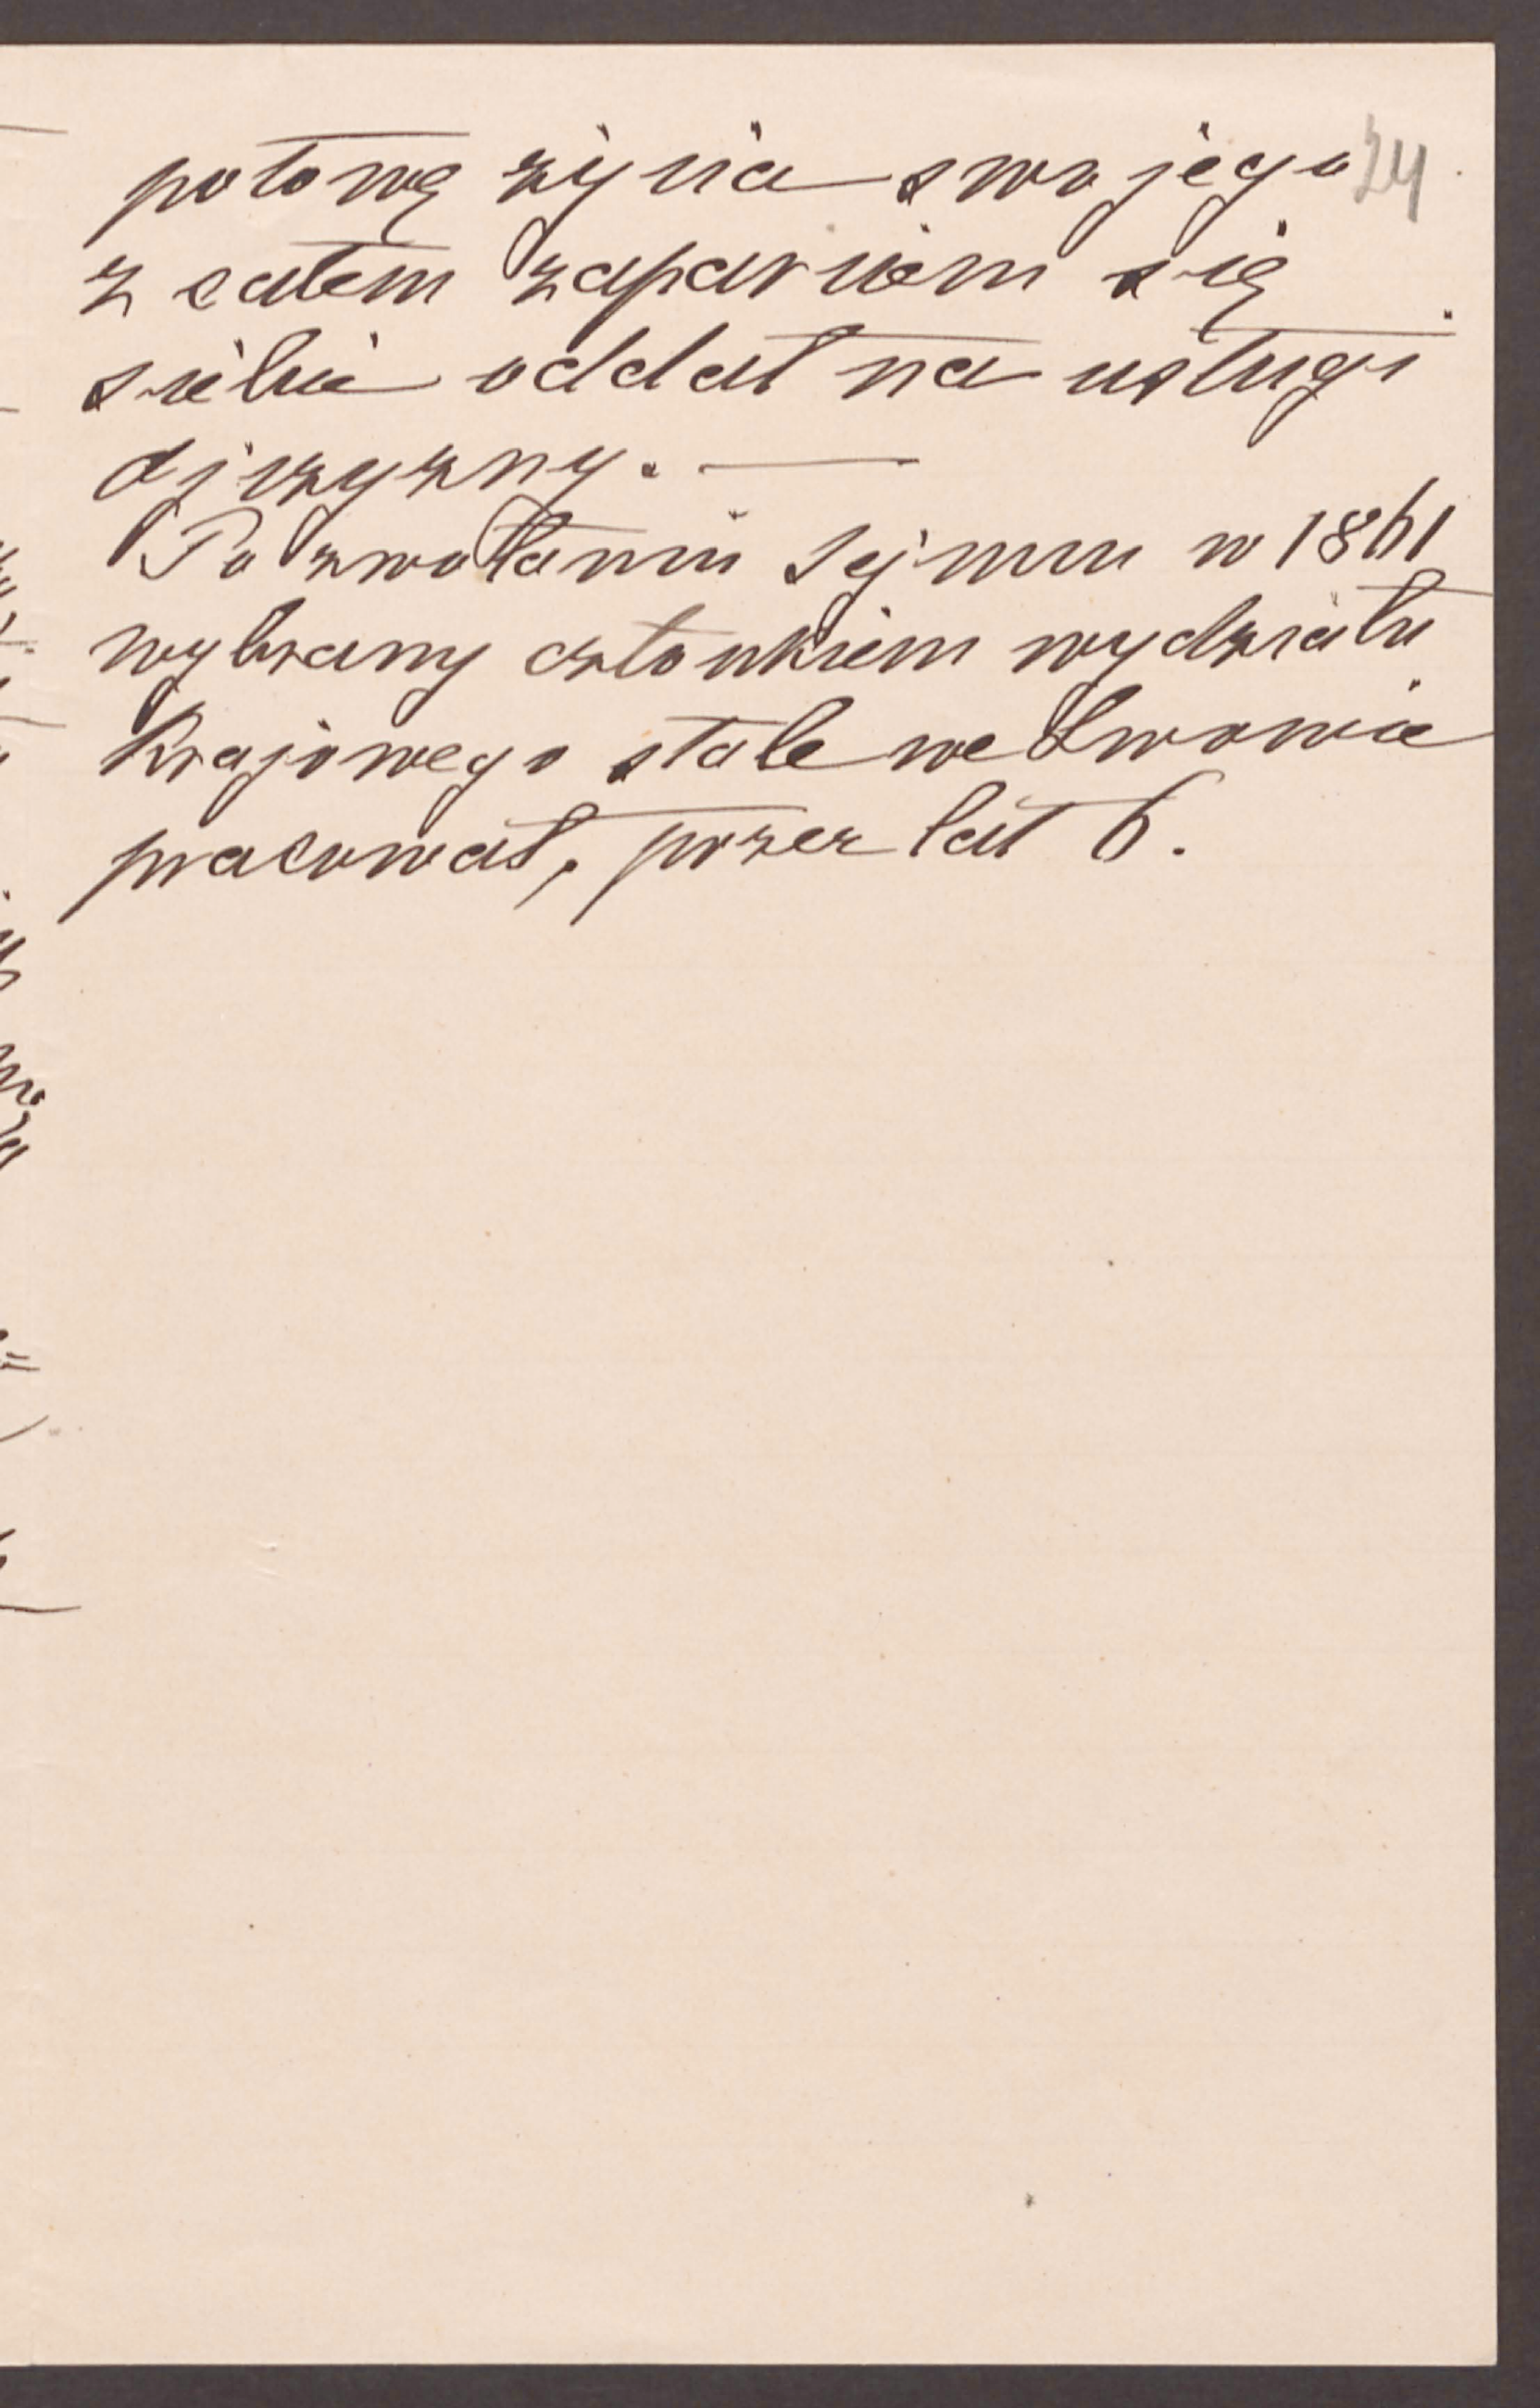 połową życia swojego 24
z całem zaparciem się
siebie oddał na usługi
ojczyzny. —
Po zwołaniu Sejmu w 1861
wybrany członkiem wydziału
Krajowego stale we Lwowie
pracował, przez lat 6.